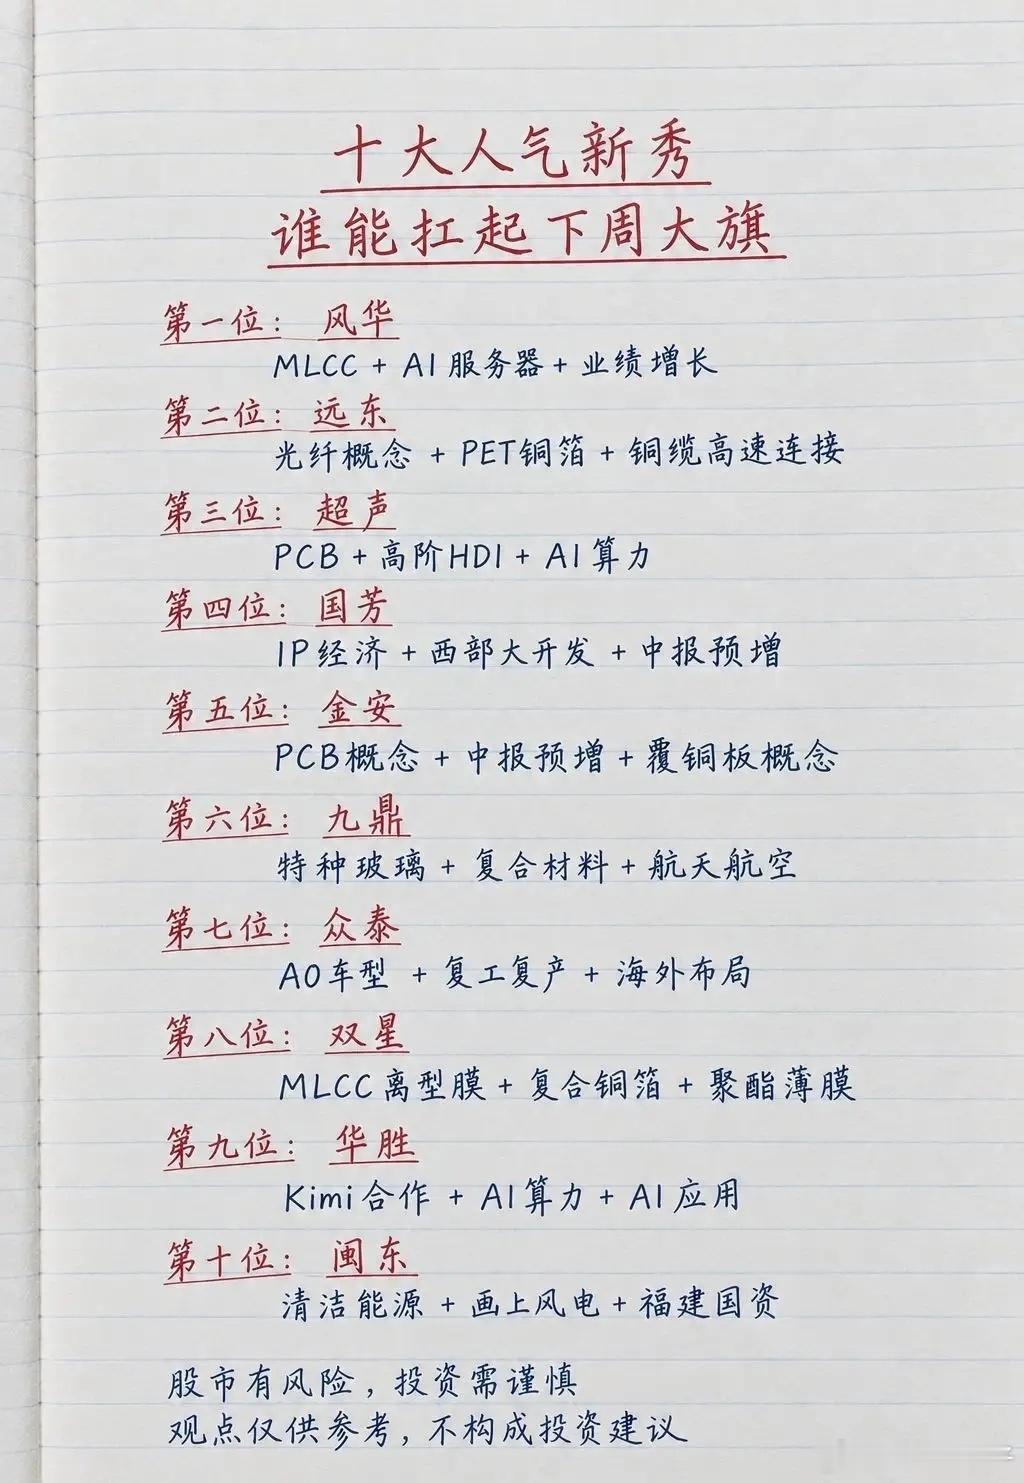 十大人气新秀
谁能扛起下周大旗
第一位：风华
MLCC + AI 服务器 + 业绩增长
第二位：远东
光纤概念 + PET铜箔 + 铜缆高速连接
第三位：超声
PCB + 高阶HDI + AI 算力
第四位：国芳
IP经济 + 西部大开发 + 中报预增
第五位：金安
PCB概念 + 中报预增 + 覆铜板概念
第六位：九鼎
特种玻璃 + 复合材料 + 航天航空
第七位：众泰
A0车型 + 复工复产 + 海外布局
第八位：双星
MLCC离型膜 + 复合铜箔 + 聚酯薄膜
第九位：华胜
Kimi合作 + AI算力 + AI应用
第十位：闽东
清洁能源 + 画上风电 + 福建国资
股市有风险，投资需谨慎
观点仅供参考，不构成投资建议